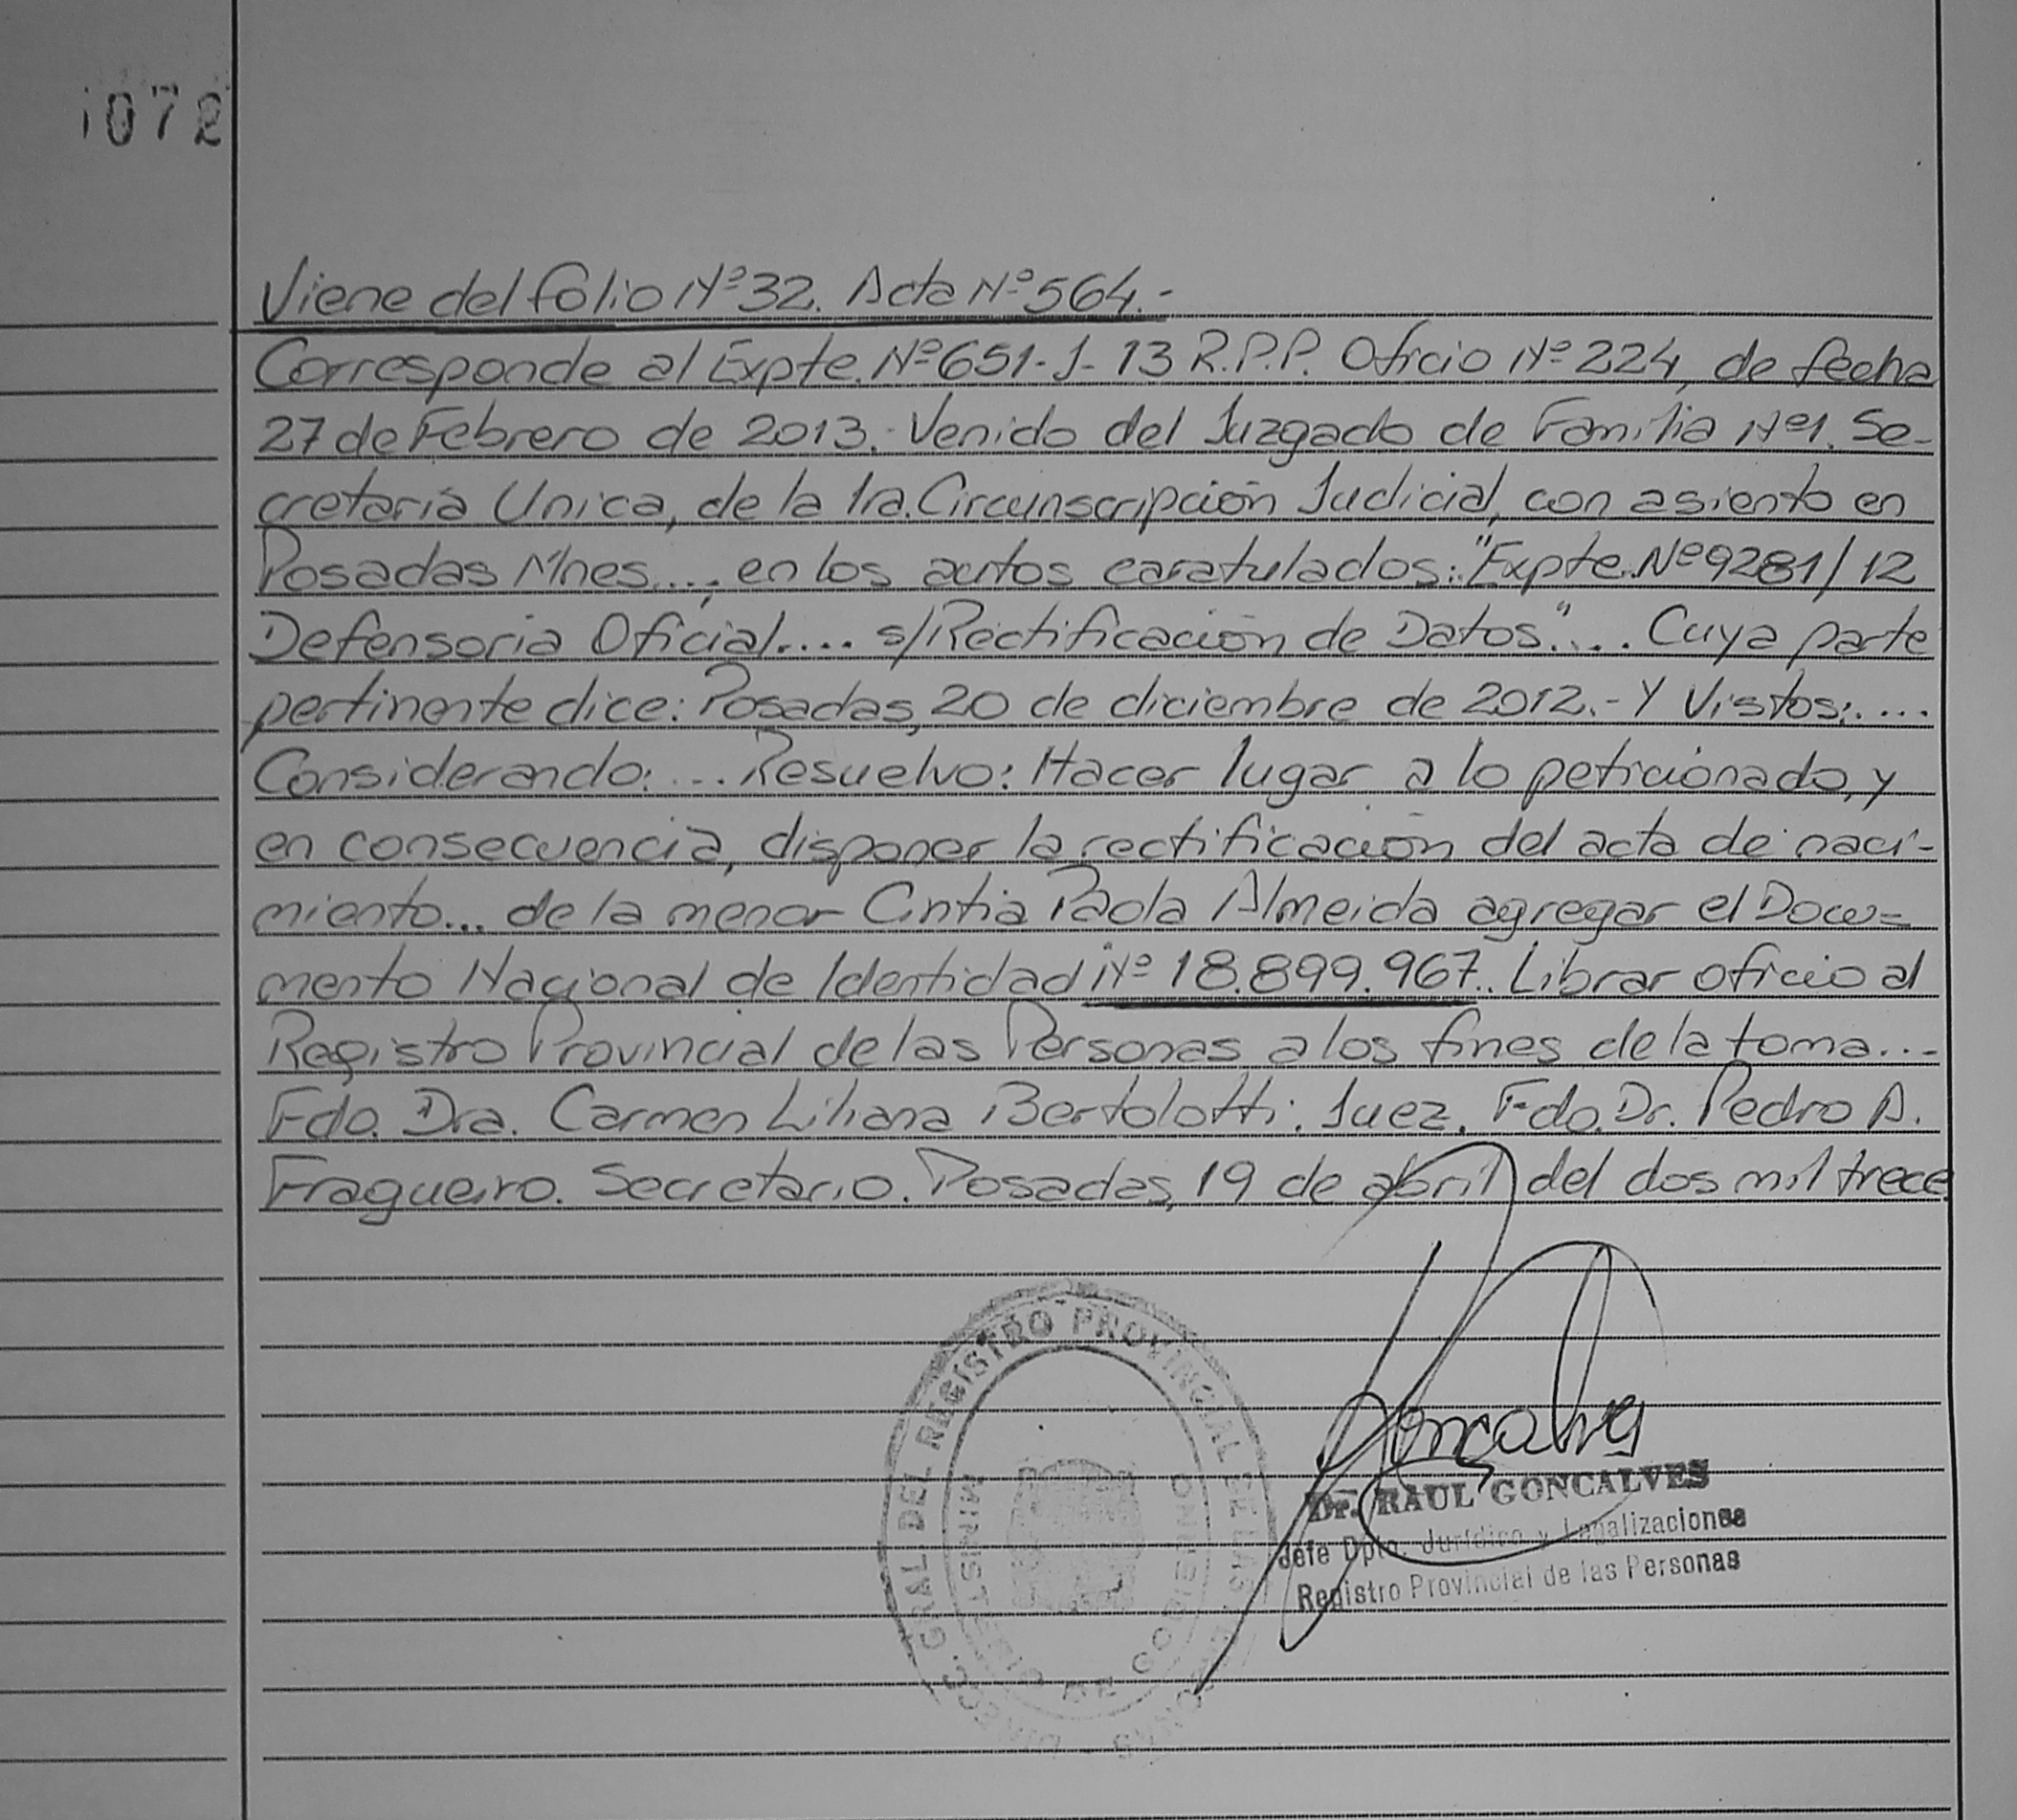 1072
Viene del folio Nº 32. Acta Nº 564.-
Corresponde al Expte. Nº 651-J-13 R.P.P. Oficio Nº 224, de fecha
27 de Febrero de 2013.- Venido del Juzgado de Familia Nº1. Se-
cretaría Unica, de la 1ra. Circunscripción Judicial, con asiento en
Posadas Mnes...., en los autos caratulados: "Expte. Nº 9281/12
Defensoria Oficial.... s/Rectificación de Datos".... Cuya parte
pertinente dice: Posadas, 20 de diciembre de 2012.- Y Vistos:....
Considerando:.... Resuelvo: Hacer lugar a lo peticionado, y
en consecuencia, disponer la rectificación del acta de naci-
miento... de la menor Cintia Paola Almeida agregar el Docu=
mento Nacional de Identidad Nº 18.899.967.. Librar oficio al
Registro Provincial de las Personas a los fines de la toma...
Fdo. Dra. Carmen Liliana Bertolotti. Juez. Fdo. Dr. Pedro A.
Fragueiro. Secretario. Posadas, 19 de abril del dos mil trece
Gonçalves
Dr. RAUL GONCALVES
Jefe Dpto. Jurídico y Legalizaciones
Registro Provincial de las Personas
GRAL. DEL REGISTRO PROVINCIAL DE LAS
MINISTERIO DE GOBIERNO